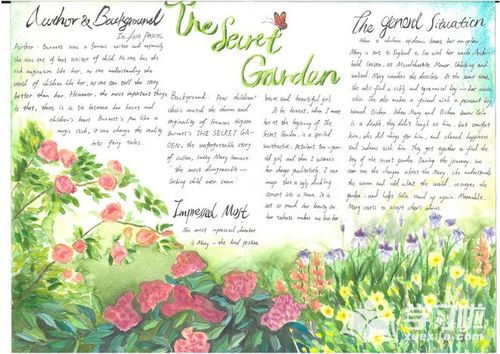 Author & Background
The
Secret
Garden
The general Situation
In fact person
Author: Burness was a famous writer and especially
she was one of best writers of child. No one has the
rich imagination like her, no one understanding the
world of children like her, no one can tell the story
better than her. However, the most important thing
is that, there is a tie between her heart and
children's heart. Burness's pen like a
magic stick, it can change the reality
into fairy tales.
Background: Few children's
classic matched the charm and
originality of Frances Hogson
Burness's THE SECRET GA-
DEN, the unforgettable story
of sullen, sulky Mary Lennox
the most disagreeable-
looking child ever seen.
Impressed Most
The most impressed character
is Mary - the kind person
brave and beautiful girl.
To be honest, when I meet
her at the beginning of The
Secret Garden, is a spoiled
girl, and then I witness
her change qualitatively, I can
image that a ugly duckling
convert into a swan. It is
not so much her beauty as
her nature makes me love her
When a cholera epidemic leaves her an orphan,
Mary is sent to England to live with her uncle, Archi-
bald Craven, at Misselthwaite Manor. Unlocking and
unloved Mary wanders the desolate. At the same time,
she also find a sickly and tyrannical boy - her cousin
Colin. She also makes a friend with a peasant boy
named Dickon. When Mary and Dickon know Colin
is a double, they didn't laugh at him, but comfort
him, and shared happiness
and sadness with him. They get together to find the
key of the secret garden. During the journey, we
can see the changes about the Mary, she understand
the warm and cold about the world, manages the
garden, and helps Colin stand up again. Meanwhile,
Mary learns to accept other's ideas.
学习啦
xuexila.com